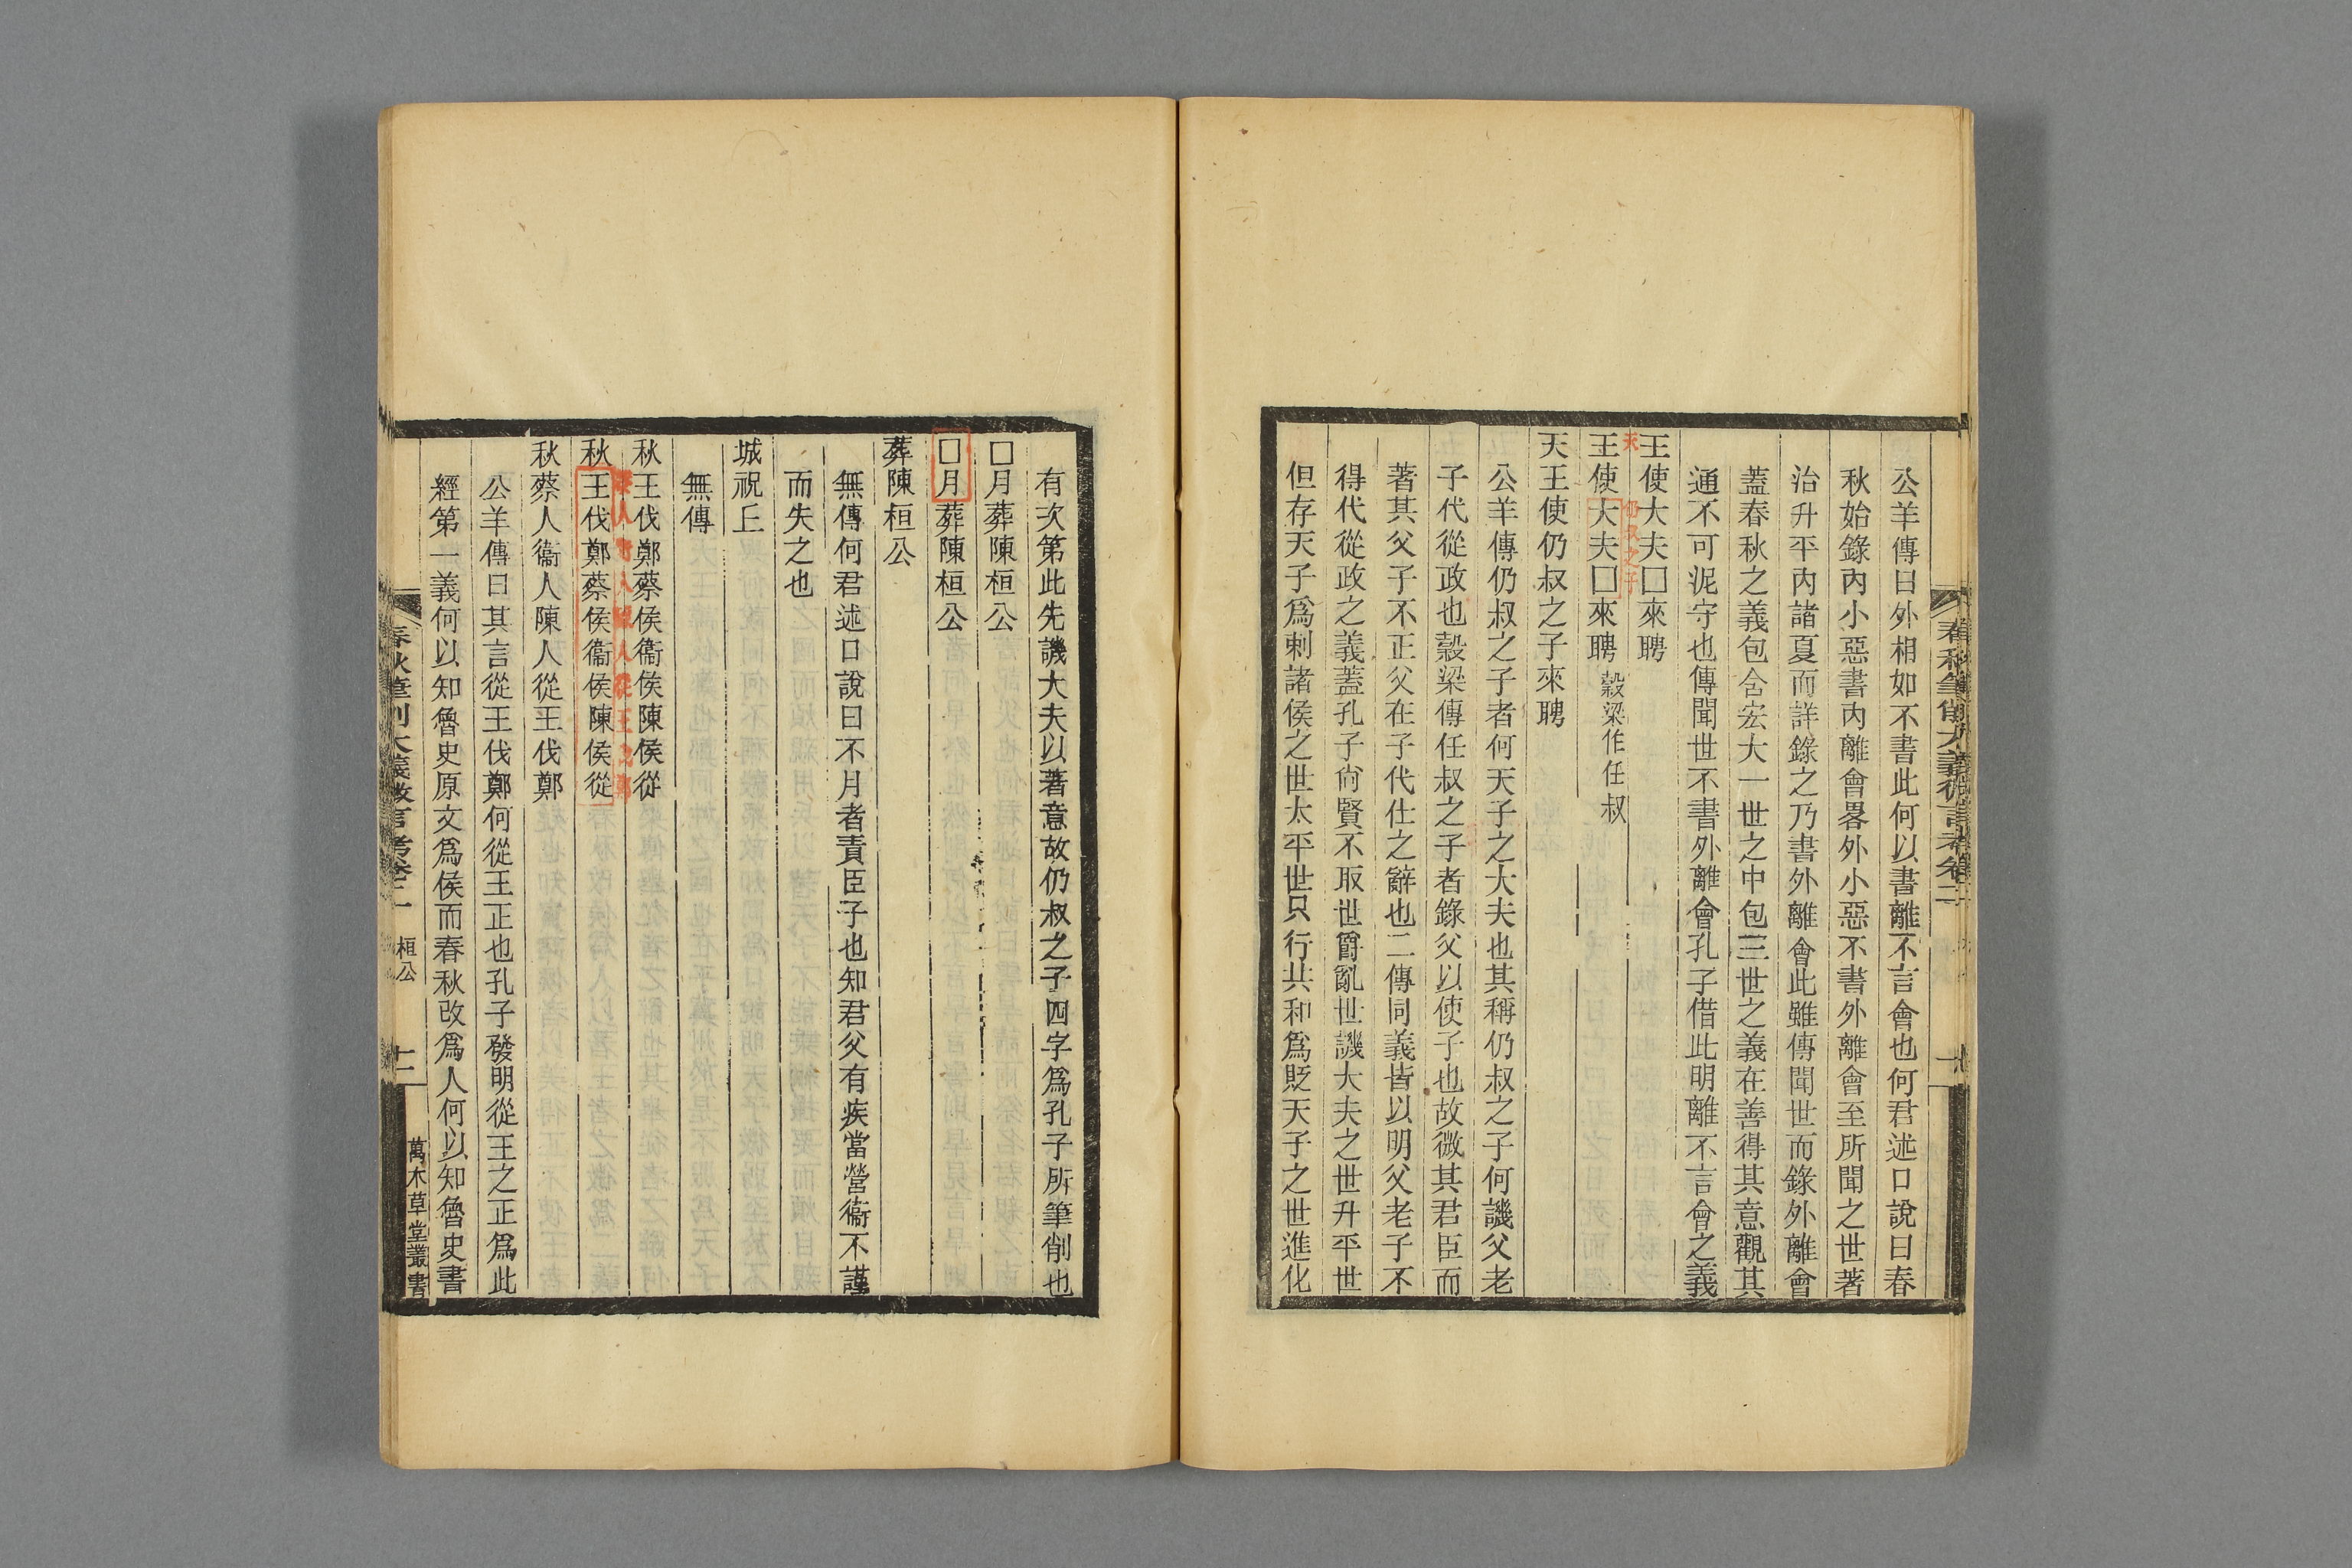 公羊傳曰外相如不書此何以書離不言會也何君述口說曰春
秋始錄內小惡書內離會畧外小惡不書外離會至所聞之世著
治升平內諸夏而詳錄之乃書外離會此雖傳聞世而錄外離會
蓋春秋之義包含宏大一世之中包三世之義在善得其意觀其
通不可泥守也傳聞世不書外離會孔子借此明離不言會之義
王使大夫□來聘
天 仍叔之子
王使大夫□來聘 穀梁作任叔
天王使仍叔之子來聘
公羊傳仍叔之子者何天子之大夫也其稱仍叔之子何譏父老
子代從政也穀梁傳任叔之子者錄父以使子也故微其君臣而
著其父子不正父在子代仕之辭也二傳同義皆以明父老子不
得代從政之義蓋孔子尙賢不取世爵亂世譏大夫之世升平世
但存天子爲刺諸侯之世太平世只行共和爲貶天子之世進化
有次第此先譏大夫以著意故仍叔之子四字爲孔子所筆削也
□月葬陳桓公
□月葬陳桓公
葬陳桓公
無傳何君述口說曰不月者責臣子也知君父有疾當營衞不謹
而失之也
城祝丘
無傳
秋王伐鄭蔡侯衞侯陳侯從
蔡人衞人陳人從王伐鄭
秋王伐鄭蔡侯衞侯陳侯從
秋蔡人衞人陳人從王伐鄭
公羊傳曰其言從王伐鄭何從王正也孔子發明從王之正爲此
經第一義何以知魯史原文爲侯而春秋改爲人何以知魯史書
春秋筆削大義微言考卷二 桓公 十二 萬木草堂叢書